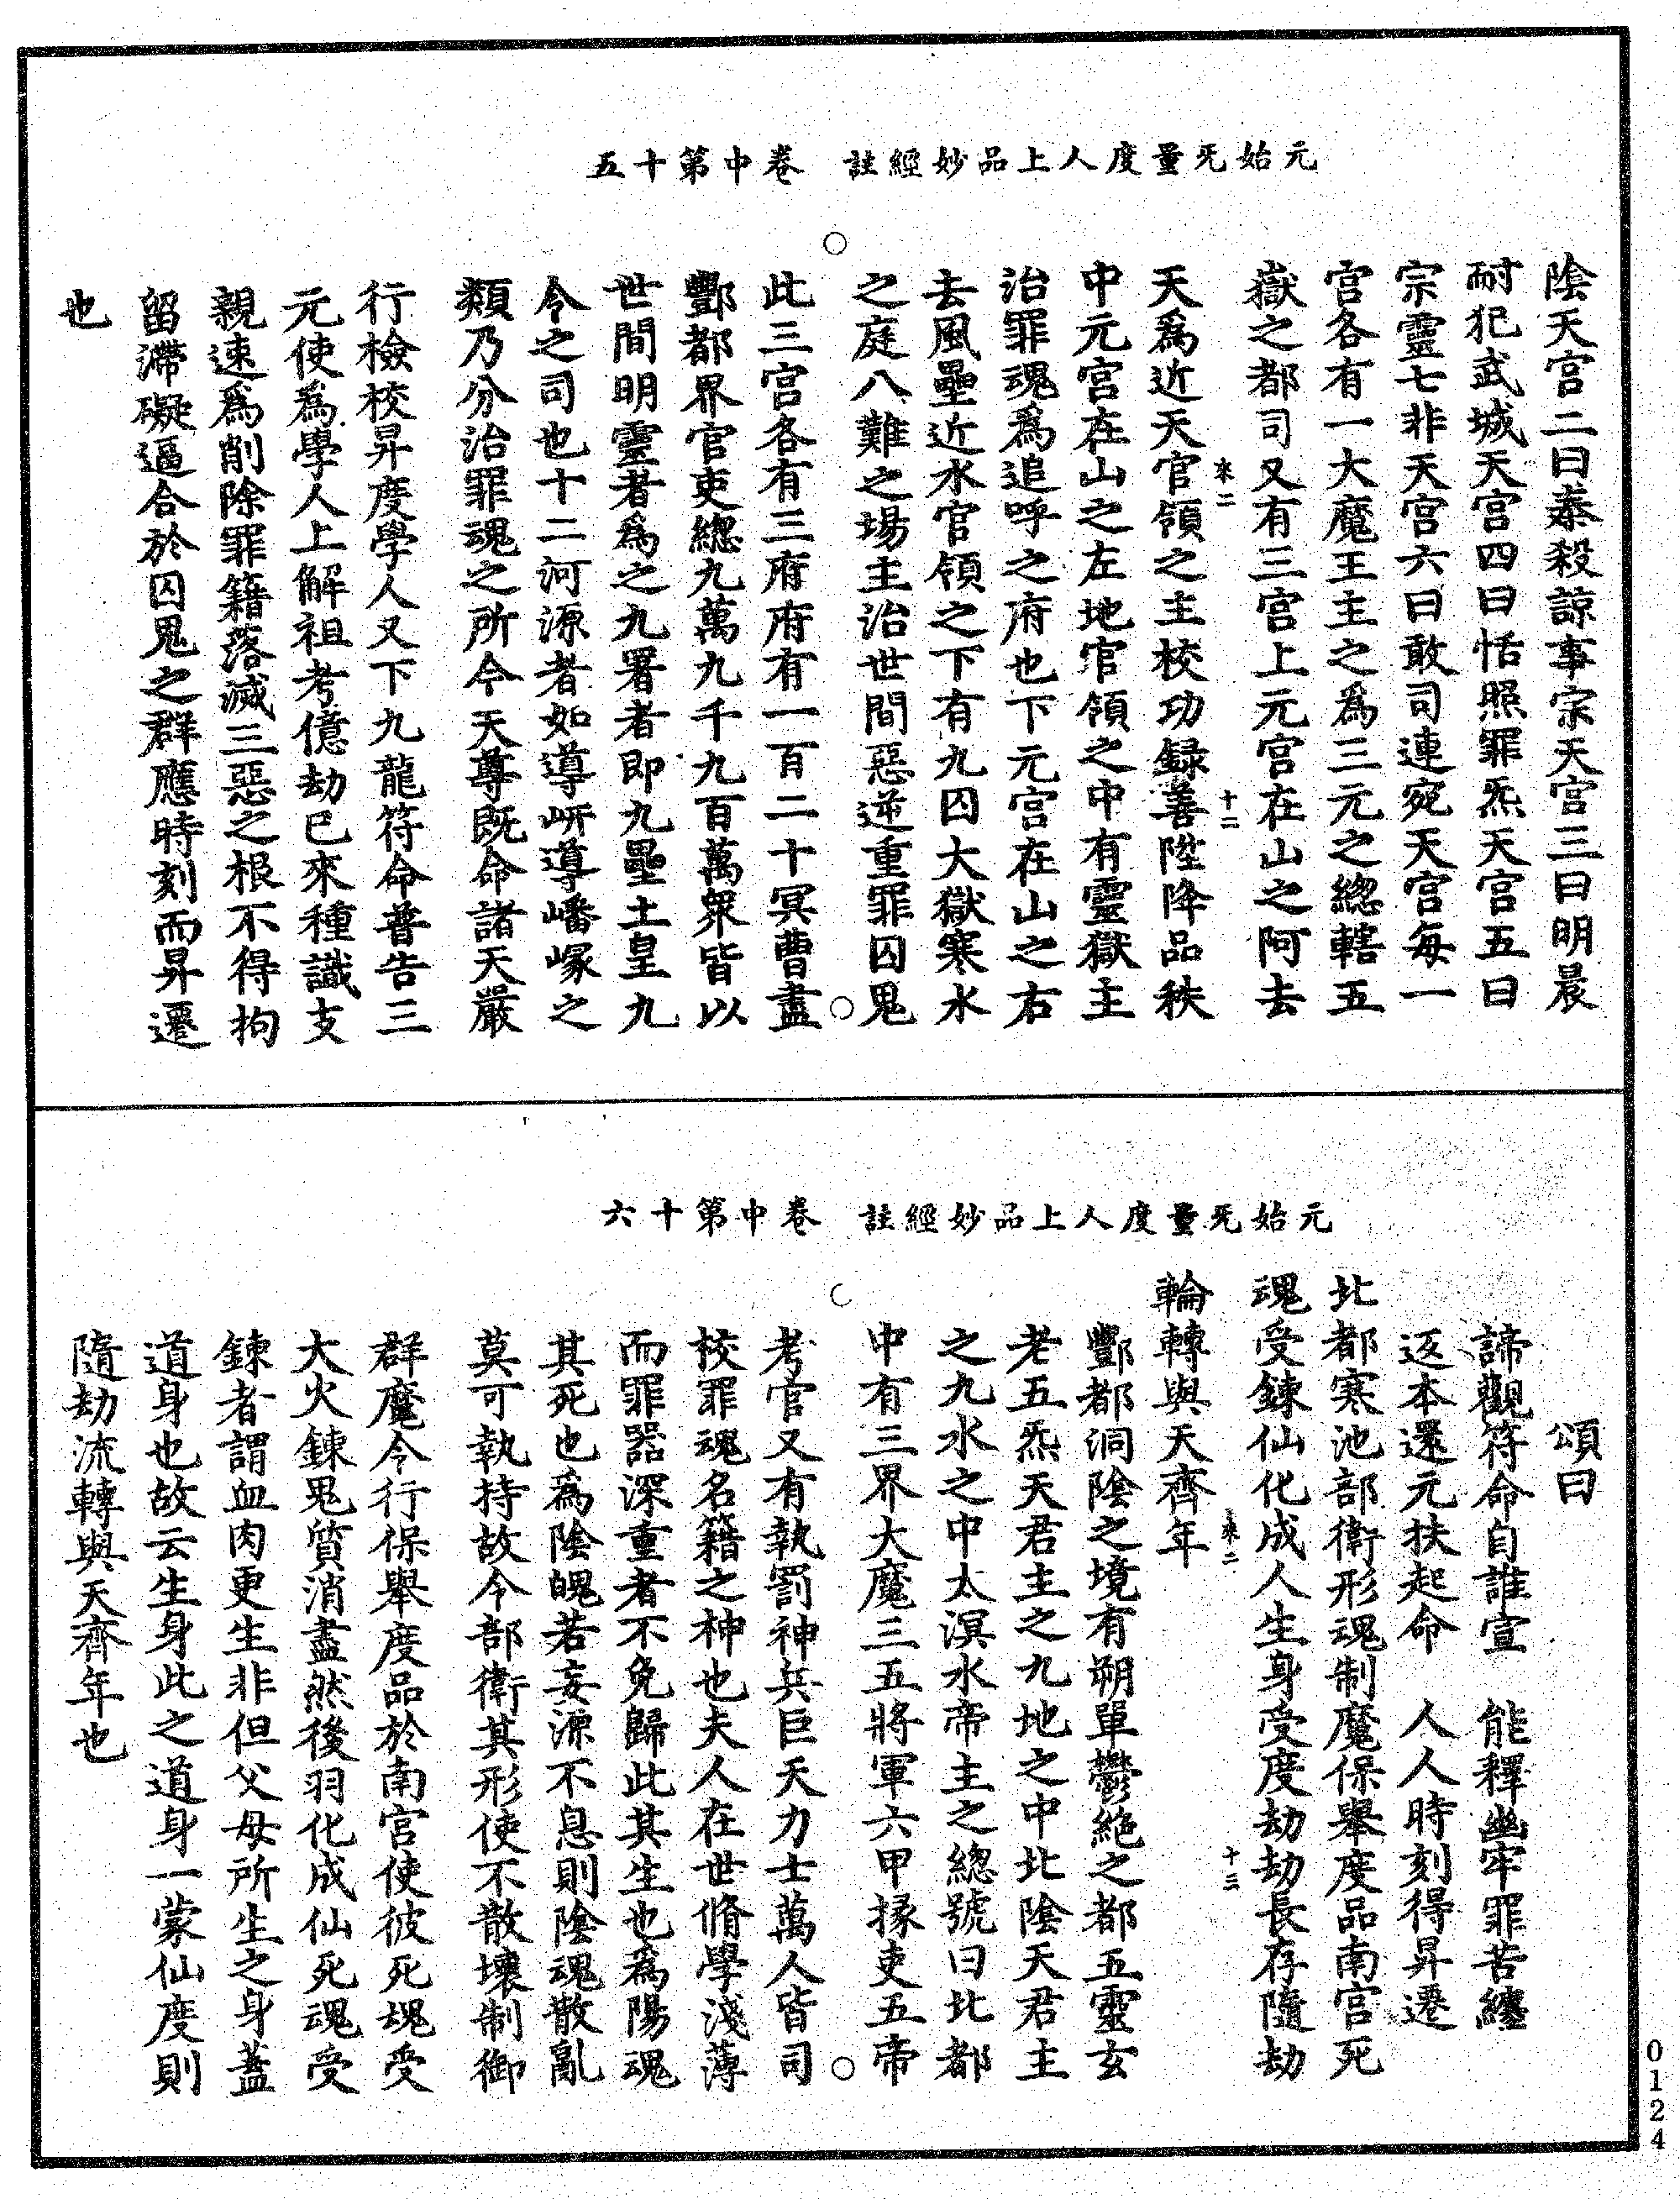 元始无量度人上品妙經註 卷中第十五
陰天宮二曰泰殺諒事宗天宮三曰明晨
耐犯武城天宮四曰恬照罪炁天宮五曰
宗靈七非天宮六曰敢司連宛天宮每一
宮各有一大魔王主之為三元之總轄五
嶽之都司又有三宮上元宮在山之阿去
來二 十二
天為近天官領之主校功録善陞降品秩
中元宮在山之左地官領之中有靈獄主
治罪魂為追呼之府也下元宮在山之右
去風壘近水官領之下有九囚大獄寒水
之庭八難之場主治世間惡逆重罪囚鬼
此三宮各有三府府有一百二十冥曹盡
酆都界官吏總九萬九千九百萬眾皆以
世間明靈者為之九署者即九壘土皇九
令之司也十二河源者如導岍導嶓冢之
類乃分治罪魂之所今天尊既命諸天嚴
行檢校昇度學人又下九龍符命普告三
元使為學人上解祖考億劫已來種識支
親速為削除罪籍落滅三惡之根不得拘
留滯礙逼合於囚鬼之群應時刻而昇遷
也
元始无量度人上品妙經註 卷中第十六
頌曰
諦觀符命自誰宣 能釋幽牢罪苦纏
返本還元扶起命 人人時刻得昇遷
北都寒池部衛形魂制魔保舉度品南宮死
魂受鍊仙化成人生身受度劫劫長存隨劫
來二 十三
輪轉與天齊年
酆都洞陰之境有朔單鬱絕之都五靈玄
老五炁天君主之九地之中北陰天君主
之九水之中太溟水帝主之總號曰北都
中有三界大魔三五將軍六甲掾吏五帝
考官又有執罰神兵巨天力士萬人皆司
校罪魂名籍之神也夫人在世脩學淺薄
而罪器深重者不免歸此其生也為陽魂
其死也為陰魄若妄源不息則陰魂散亂
莫可執持故今部衛其形使不散壞制御
群魔令行保舉度品於南宮使彼死魂受
大火鍊鬼質消盡然後羽化成仙死魂受
鍊者謂血肉更生非但父母所生之身蓋
道身也故云生身此之道身一蒙仙度則
隨劫流轉與天齊年也
0124